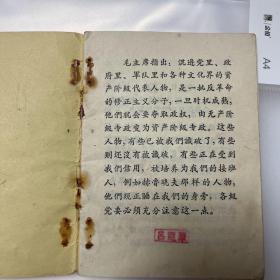 毛主席指出：混进党里、政
府里、军队里和各种文化界的资
产阶级代表人物，是一批反革命
的修正主义分子，一旦时机成熟，
他们就会要夺取政权，由无产阶
级专政变为资产阶级专政。这些
人物，有些已被我们识破了，有些
则还没有被识破，有些正在受到
我们信用，被培养为我们的接班
人，例如赫鲁晓夫那样的人物，
他们现正睡在我们的身旁，各级
党委必须充分注意这一点。
A4